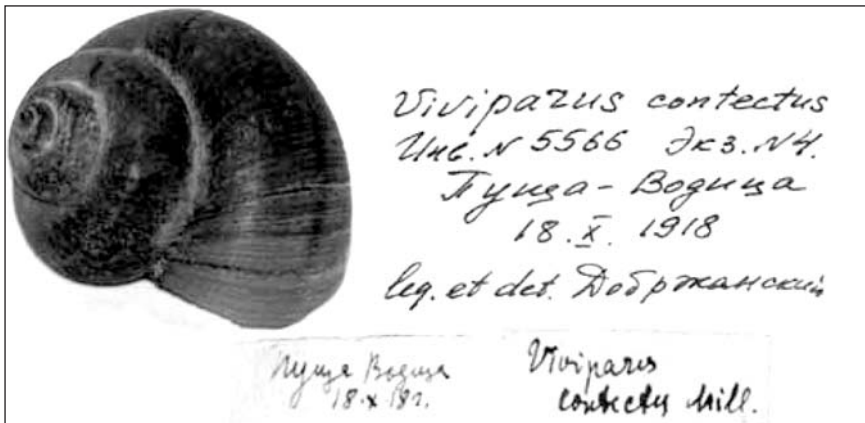 Viviparus contectus
Инв. N 5566 Экз. N4.
Пуща-Водица
18.X. 1918
leg. et det. Добржанский
Пуща Водица
18.X 18г.
Viviparus
contectus Mill.